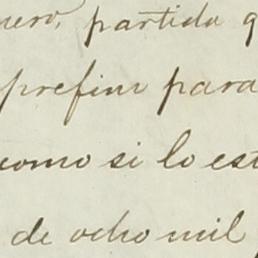 nero, partida q
prefin para
como si lo est
de ocho mil